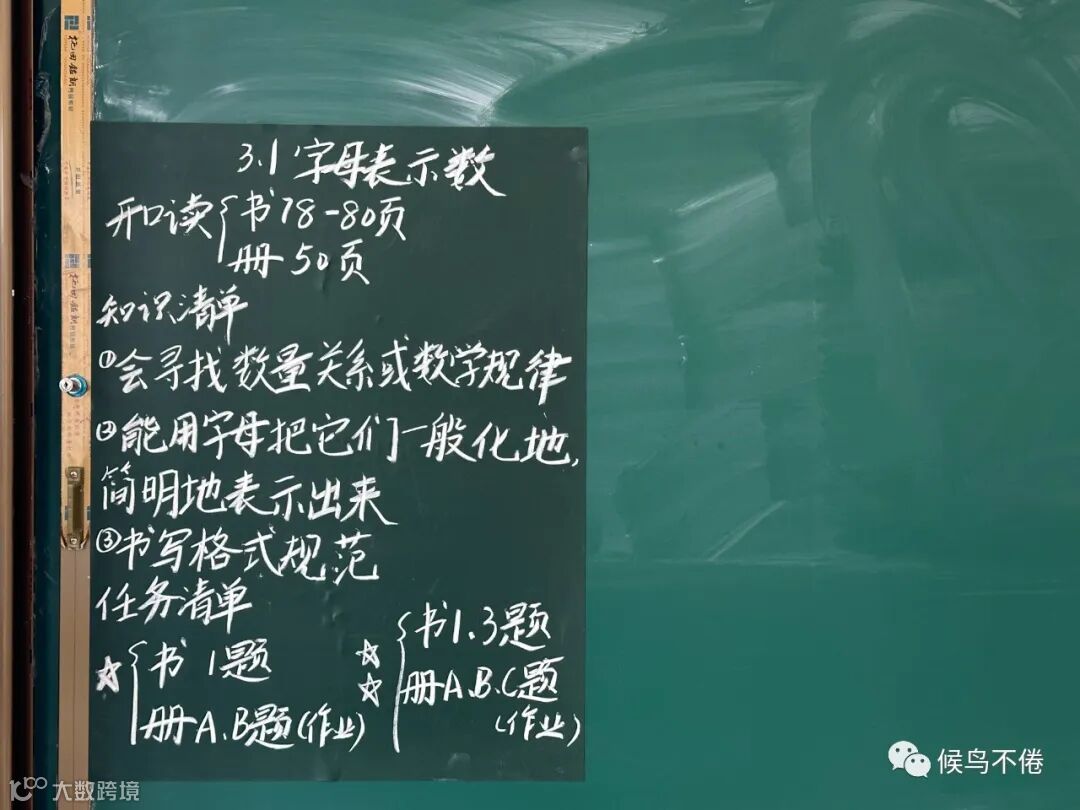 3.1 字母表示数
开口读 书78-80页
册50页
知识清单
①会寻找数量关系或数学规律
②能用字母把它们一般化地,
简明地表示出来
③书写格式规范
任务清单
☆ 书 1题
册A.B题(作业)
☆☆ 书1.3题
册A.B.C题
(作业)
候鸟不倦
大数跨境